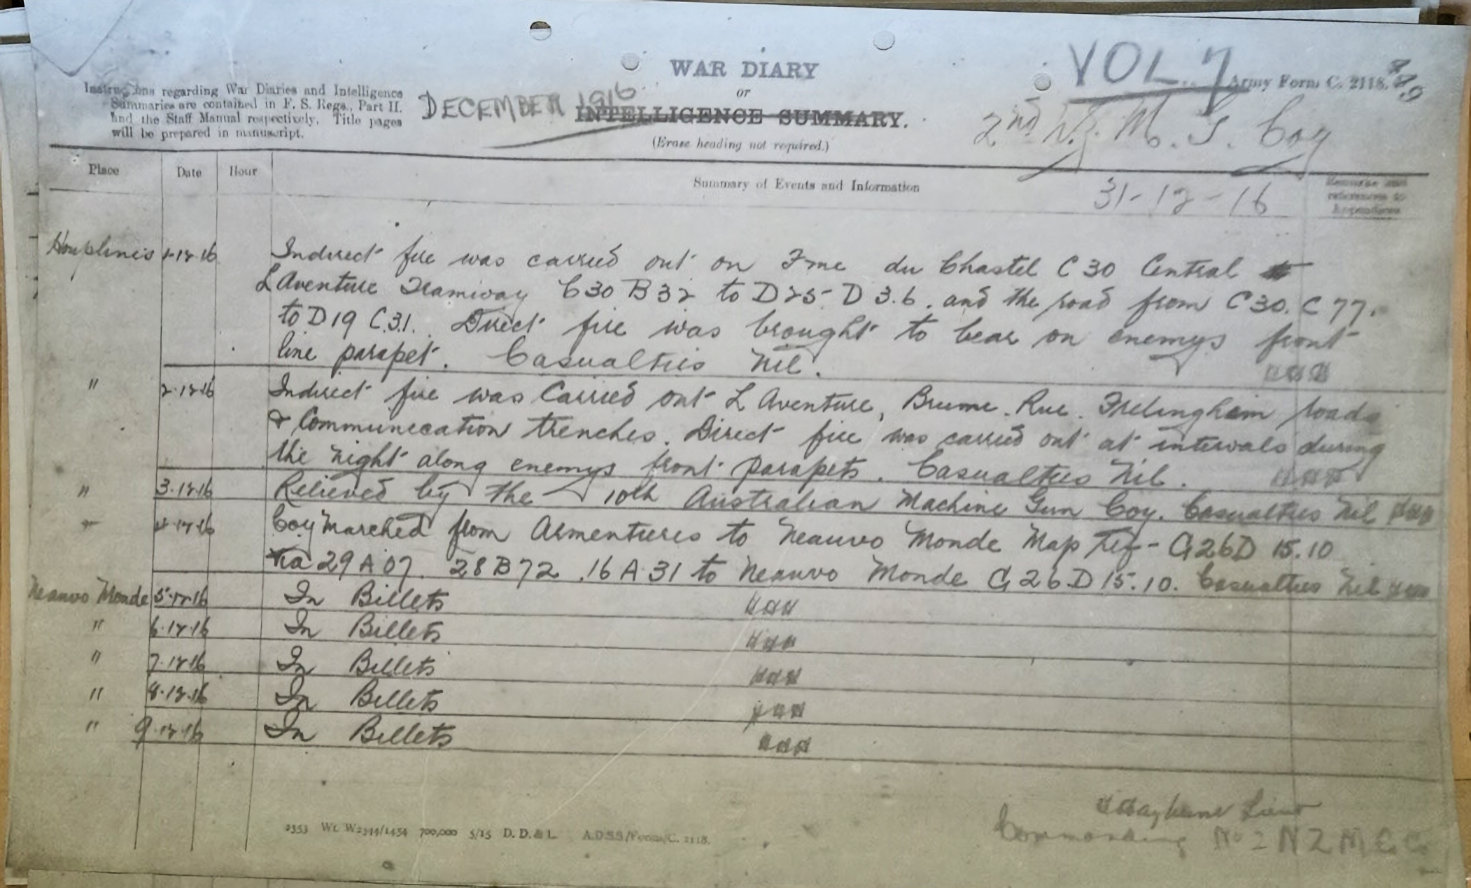 VOL. 7
WAR DIARY
Army Form C. 2118.
Instructions regarding War Diaries and Intelligence
Summaries are contained in F. S. Regs., Part II.
and the Staff Manual respectively. Title pages
will be prepared in manuscript.
or
DECEMBER 1916
INTELLIGENCE SUMMARY.
(Erase heading not required.)
2nd N.Z. M. G. Coy
31-12-16
Place Date Hour Summary of Events and Information
Remarks and
references to
Appendices
Houplines 1-12-16 Indirect fire was carried out on Fme du Chastel C 30 Central
L Aventure Tramway C30 B 32 to D25-D 3.6. and the road from C 30. C 77.
to D19 C.31. Direct fire was brought to bear on enemys front
line parapet. Casualties Nil.
" 2-12-16 Indirect fire was Carried out L Aventure, Brume. Rue. Frelinghem roads
& Communication trenches. Direct fire was carried out at intervals during
the night along enemys front parapets. Casualties Nil.
" 3-12-16 Relieved by the 10th Australian Machine Gun Coy. Casualties Nil
" 4-12-16 Coy Marched from Armentieres to Neauvo Monde Map Ref - G26D 15.10
via 29 A 07. 28 B 72. 16 A 31 to Neauvo Monde G 26. D 15.10. Casualties Nil
Neauvo Monde 5-12-16 In Billets
" 6-12-16 In Billets
" 7-12-16 In Billets
" 8-12-16 In Billets
" 9-12-16 In Billets
Lieut
Commanding No 2 N Z M G C
2353 Wt. W2344/1454 700,000 5/15 D. D. & L. A.D.S.S./Forms/C. 2118.